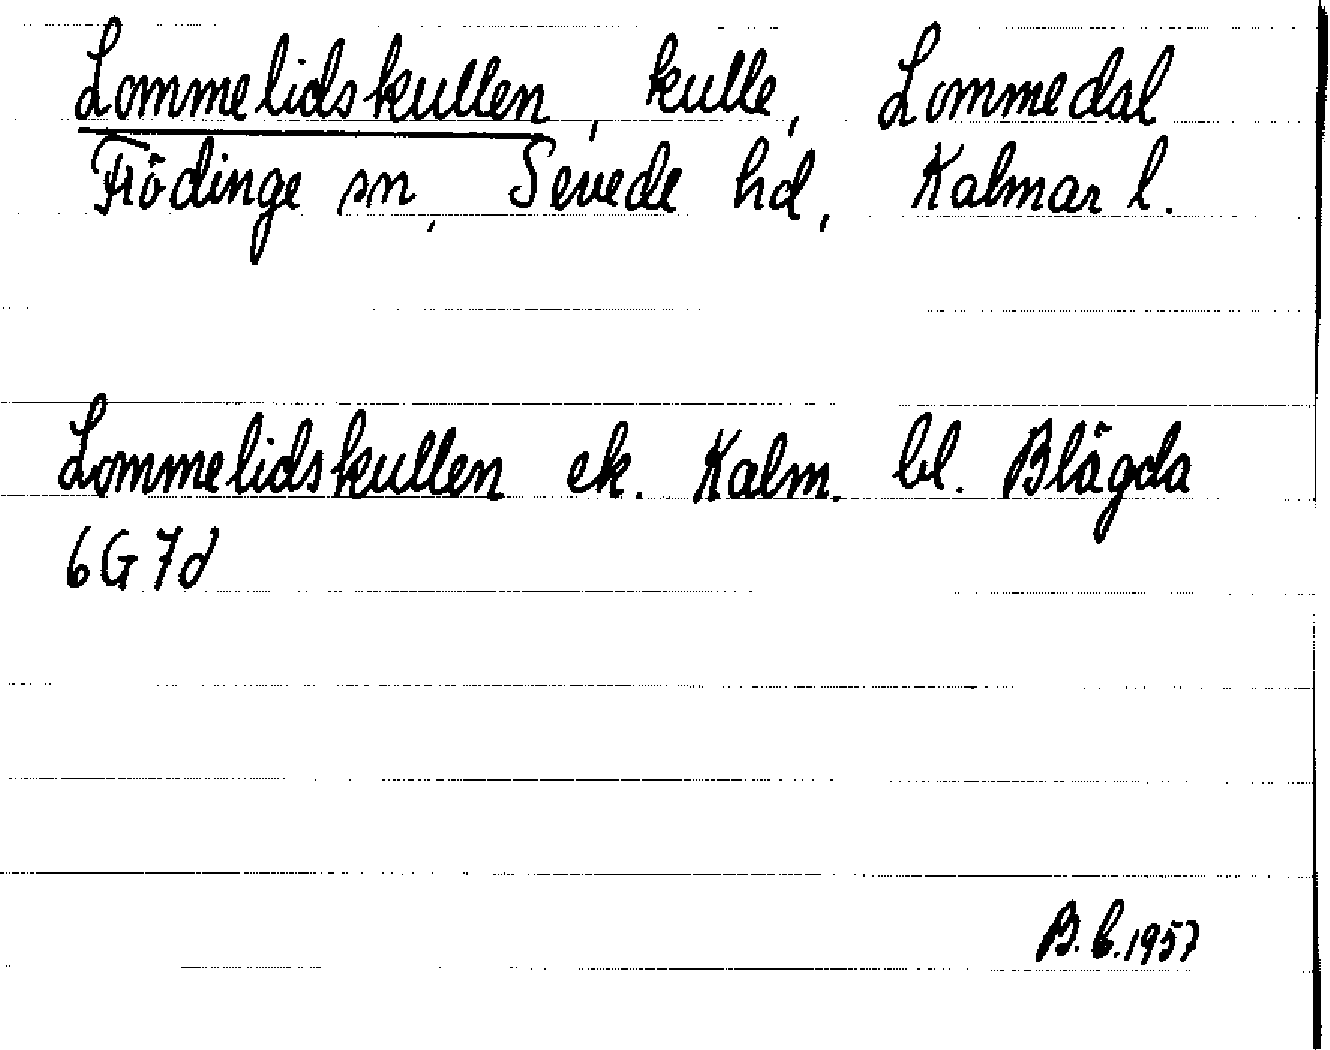 Lommelidskullen, kulle, Lommedal
Frödinge sn, Sevede hd, Kalmar l.
Lommelidskullen ek. Kalm. bl. Blägda
6G7d
B.C.1957